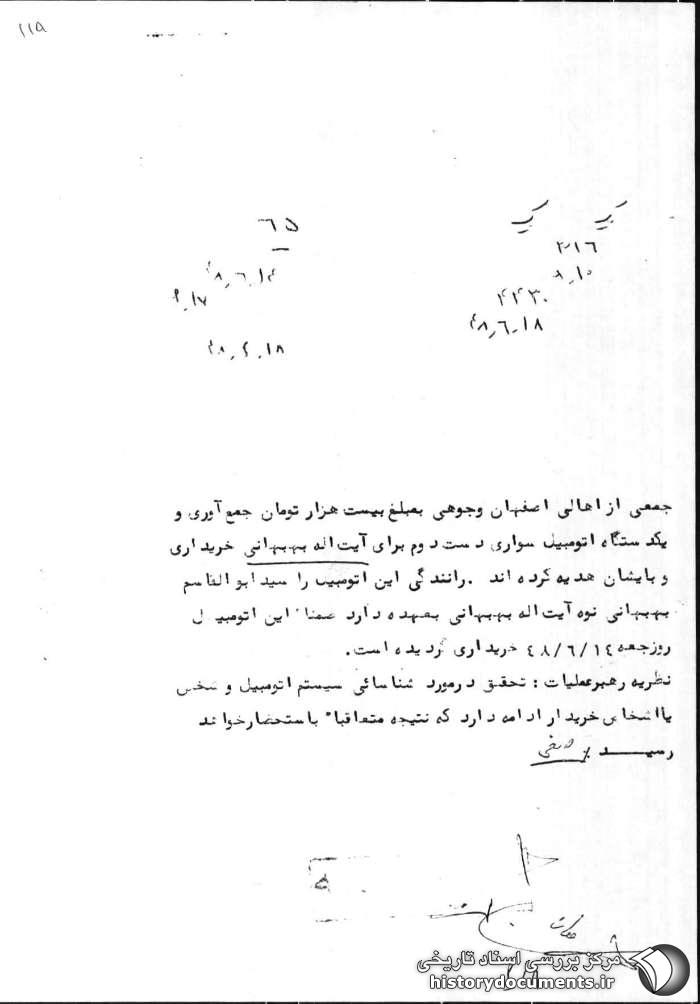 ۱۱۵
۶۵
۲۱۶
۴۸٫۶٫۱۴
۹٫۱۷
۴۴۳۰
۴۸٫۶٫۱۸
جمعی از اهالی اصفهان وجوهی بمبلغ بیست هزار تومان جمع آوری و
یکدستگاه اتومبیل سواری دست دوم برای آیت اله بهبهانی خریداری
و بایشان هدیه کرده اند . رانندگی این اتومبیل را سید ابو القاسم
بهبهانی نوه آیت اله بهبهانی بعهده دارد ضمنا" این اتومبیل
روز جمعه ۴۸/۶/۱۴ خریداری گردیده است .
نظریه رهبر عملیات : تحقیق در مورد شناسائی سیستم اتومبیل و شخص
یا اشخاص خریدار ادامه دارد که نتیجه متعاقبا" باستحضار خواهد
رسید
مرکز بررسی اسناد تاریخی
historydocuments.ir